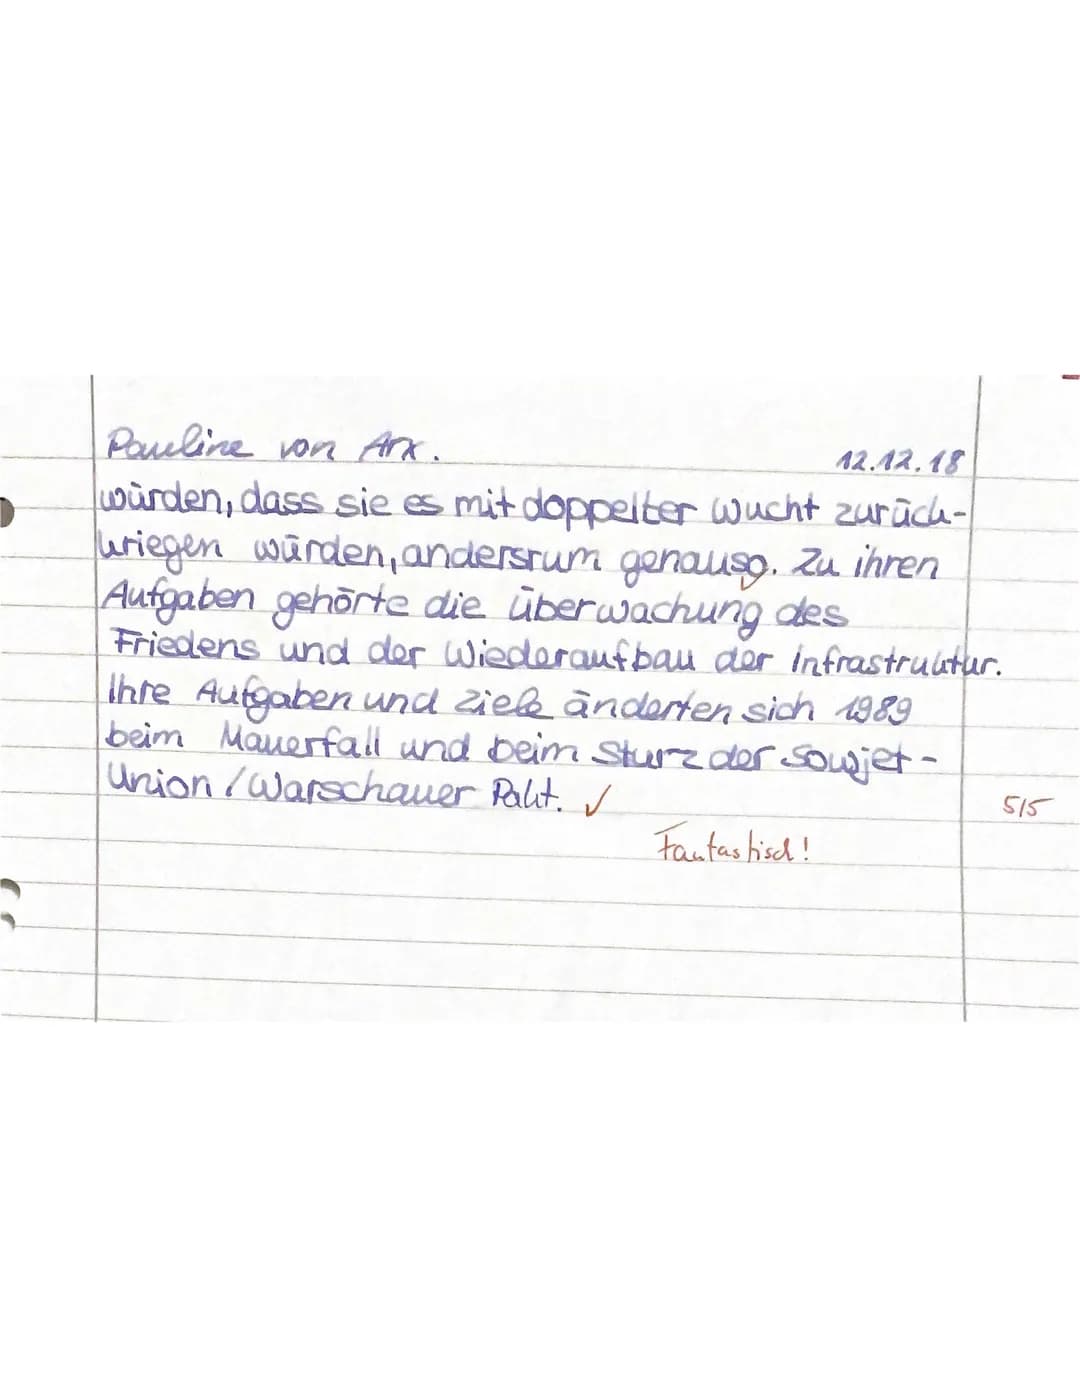 Pauline von Arx.
12.12.18
würden, dass sie es mit doppelter Wucht zurück-
kriegen würden, andersrum genauso. Zu ihren
Aufgaben gehörte die Überwachung des
Friedens und der Wiederaufbau der Infrastruktur.
Ihre Aufgaben und Ziele änderten sich 1989
beim Mauerfall und beim Sturz der Sowjet-
Union / Warschauer Pakt. ✓
5/5
Fantastisch!